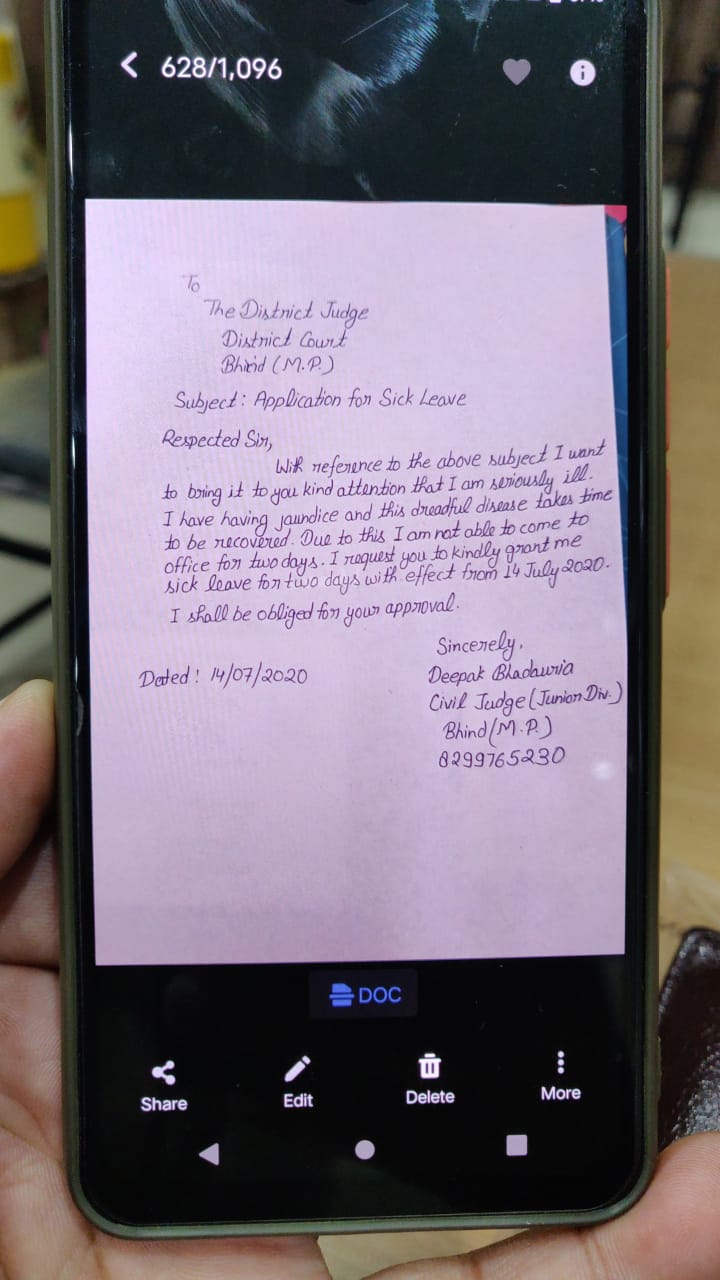 628/1,096
To
The District Judge
District Court
Bhind (M.P.)
Subject: Application for Sick Leave
Respected Sir,
With reference to the above subject I want
to bring it to you kind attention that I am seriously ill.
I have having jaundice and this dreadful disease takes time
to be recovered. Due to this I am not able to come to
office for two days. I request you to kindly grant me
sick leave for two days with effect from 14 July 2020.
I shall be obliged for your approval.
Sincerely,
Dated: 14/07/2020
Deepak Bhadauria
Civil Judge (Junior Div.)
Bhind (M.P.)
8299765230
DOC
Share Edit Delete More